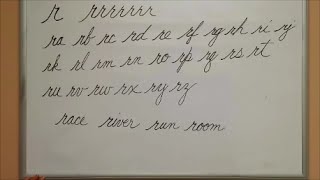 r rrrrrrr
ra rb rc rd re rf rg rh ri rj
rk rl rm rn ro rp rq rs rt
ru rv rw rx ry rz
race river run room